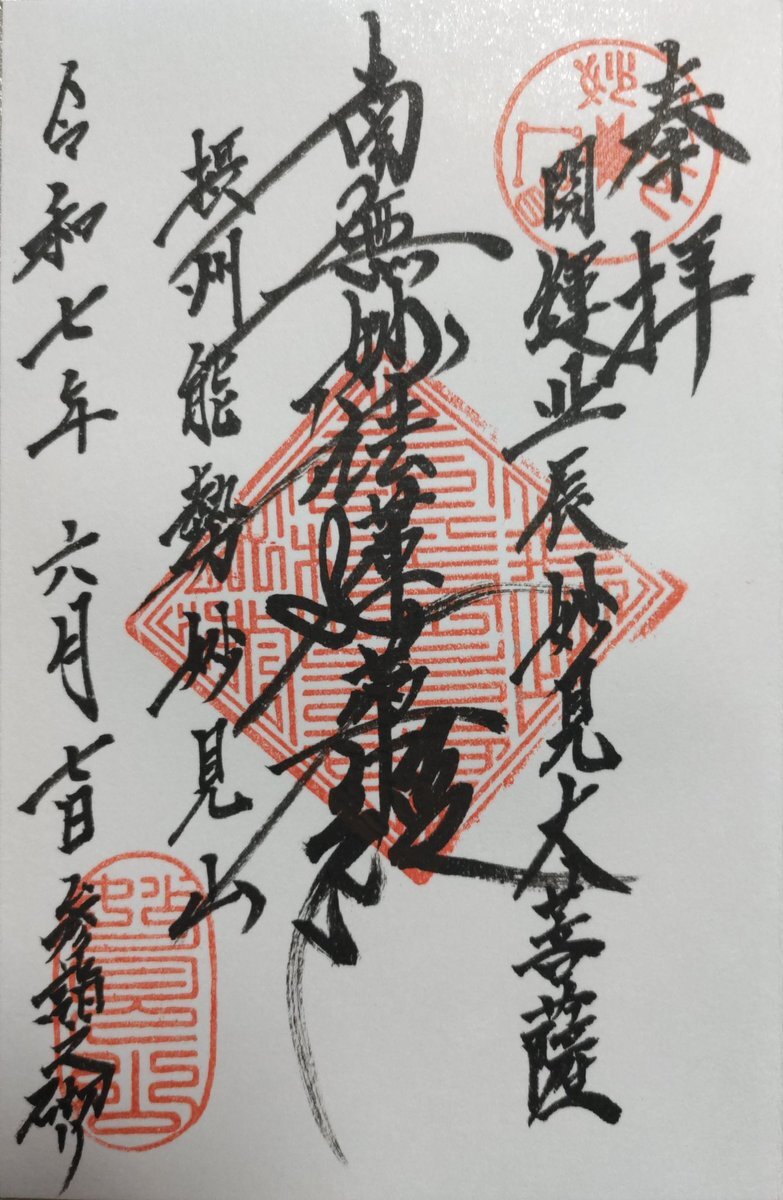 奉拝
開運北辰妙見大菩薩
南無妙法蓮華経
摂州能勢妙見山
令和七年 六月七日 参詣之砌
妙見山